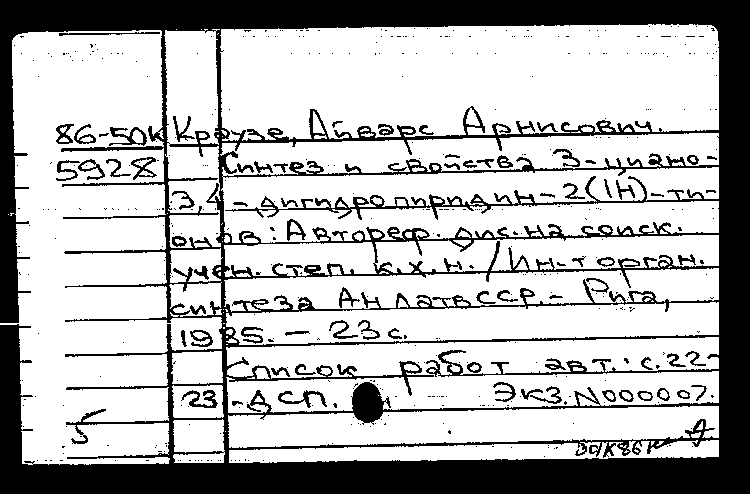 86-50к Краузе, Айварс Арнисович.
5928 Синтез и свойства 3-циано-
3,4-дигидропиридин-2(1H)-ти-
онов: Автореф. дис. на соиск.
учен. степ. к.х.н. / Ин-т орган.
синтеза АН ЛатвССР. - Рига,
1985. - 23 с.
Список работ авт.: с. 22-
23 - ДСП. Экз. N000007.
5